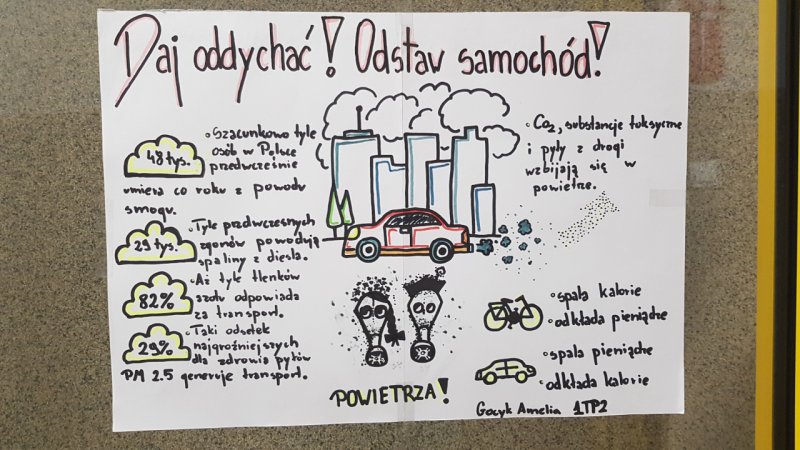 Daj oddychać! Odstaw samochód!
48 tys.
• Szacunkowo tyle
osób w Polsce
przedwcześnie
umiera co roku z powodu
smogu.
29 tys.
• Tyle przedwczesnych
zgonów powodują
spaliny z diesla.
82%
• Aż tyle tlenków
azotu odpowiada
za transport.
29%
• Taki odsetek
najgroźniejszych
dla zdrowia pyłów
PM 2.5 generuje transport.
• CO2, substancje toksyczne
i pyły z drogi
wzbijają się w
powietrze.
POWIETRZA!
• spala kalorie
• odkłada pieniądze
• spala pieniądze
• odkłada kalorie
Gocyk Amelia 1TP2